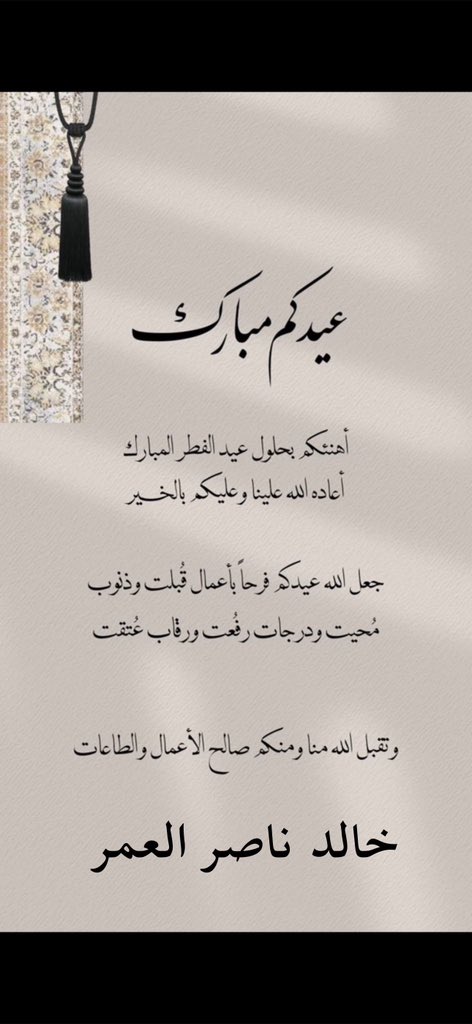 عيدكم مبارك
أهنئكم بحلول عيد الفطر المبارك
أعاده الله علينا وعليكم بالخير
جعل الله عيدكم فرحاً بأعمال قُبلت وذنوب
مُحيت ودرجات رفُعت ورقاب عُتقت
وتقبل الله منا ومنكم صالح الأعمال والطاعات
خالد ناصر العمر